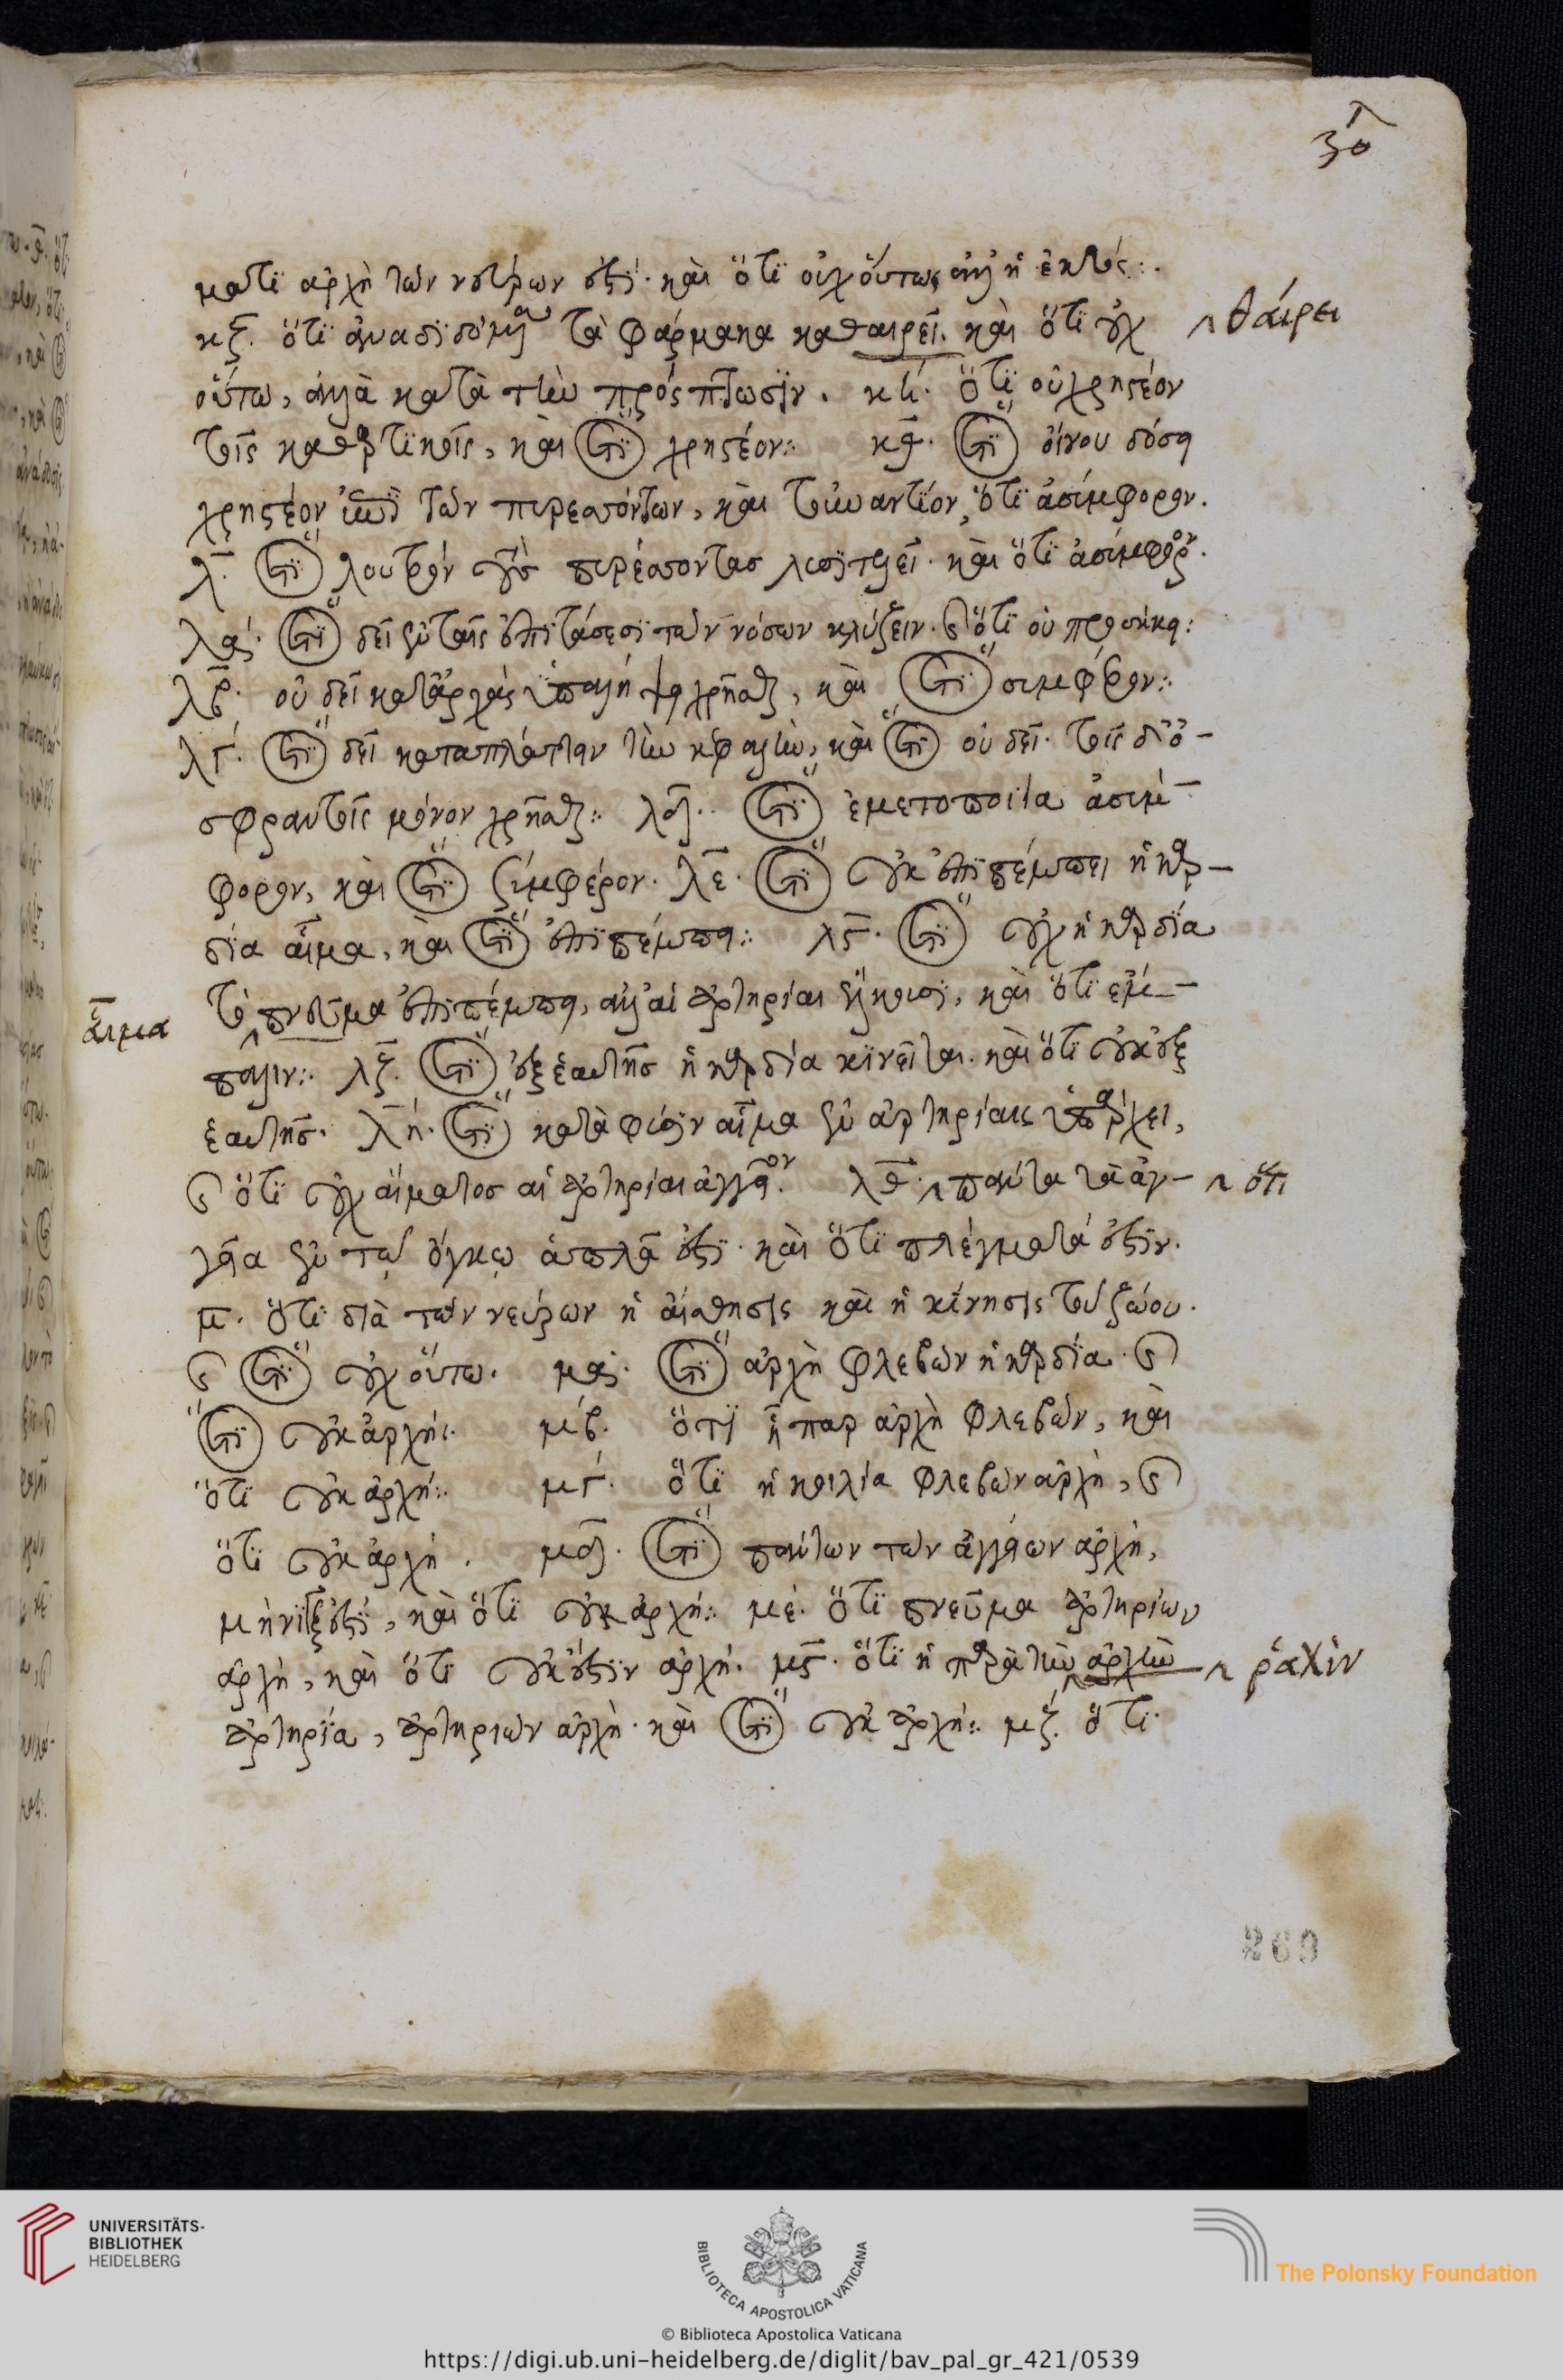 ξο
ματι ἀρχὴ τῶν νεύρων ἐστί· καὶ ὅτι οὐχ οὕτως ἀλλ' ἡ ἐκτός:·
κζ. ὅτι ἀναδιδόμενα τὰ φάρμακα καθαιρεῖ. καὶ ὅτι οὐχ θάιρει
οὕτω, ἀλλὰ κατὰ τὴν πρόσπτωσιν. κή. ὅτι οὐ χρηστέον
τοῖς καθαρτικοῖς, καὶ ὅτι χρηστέον:· κθ. ὅτι οἴνου δόσει
χρηστέον ἐπὶ τῶν πυρεσσόντων, καὶ τοὐναντίον, ὅτι ἀσύμφορον.
λ. ὅτι λουτρὸν τοὺς πυρέσσοντας λυσιτελεῖ· καὶ ὅτι ἀσύμφορον.
λα. ὅτι δεῖ ἐν ταῖς ἐπιτάσεσι τῶν νόσων κλύζειν. καὶ ὅτι οὐ προσήκει:
λβ. οὐ δεῖ κατ' ἀρχὰς ὑπαλήψει χρῆσθαι, καὶ ὅτι συμφέρον:·
λγ. ὅτι δεῖ καταπλάττειν τὴν κεφαλὴν, καὶ ὅτι οὐ δεῖ· τοῖς δὲ ὀ-
σφραντοῖς μόνον χρῆσθαι:· λδ.. ὅτι ἐμετοποιΐα ἀσύμ-
φορον, καὶ ὅτι ξύμφέρον. λε. ὅτι οὐκ ἐπιπέμπει ἡ καρ-
δία αἷμα, καὶ ὅτι ἐπιπέμπει:· λϛ. ὅτι οὐχ ἡ καρδία
τὸ πνεῦμα ἐπιπέμπει, ἀλλ' αἱ ἀρτηρίαι ἕλκουσι, καὶ ὅτι ἔμ-
ἆιμα
παλιν:· λζ. ὅτι ἐξ ἑαυτῆς ἡ καρδία κινεῖται. καὶ ὅτι οὐκ ἐξ
ἑαυτῆς. λή. ὅτι κατὰ φύσιν αἷμα ἐν ἀρτηρίαις ὑπάρχει,
καὶ ὅτι οὐχ αἵματος αἱ ἀρτηρίαι ἀγγεῖον. λθ. πάντα τὰ ἀγ- ὅτι
γεῖα ἐν τῷ ὄγκῳ ἁπλᾶ ἐστί· καὶ ὅτι πλέγματά ἐστιν.
μ. ὅτι διὰ τῶν νεύρων ἡ αἴσθησις καὶ ἡ κίνησις τοῦ ζώου.
καὶ ὅτι οὐχ οὕτω. μα. ὅτι ἀρχὴ φλεβῶν ἡ καρδία. καὶ
ὅτι οὐκ ἀρχή:· μβ. ὅτι ἧπαρ ἀρχὴ φλεβῶν, καὶ
ὅτι οὐκ ἀρχή:· μγ. ὅτι ἡ κοιλία φλεβῶν ἀρχὴ, καὶ
ὅτι οὐκ ἀρχή. μδ. ὅτι πάντων τῶν ἀγγείων ἀρχὴ,
μήνιγξ ἐστί, καὶ ὅτι οὐκ ἀρχή:· με. ὅτι πνεῦμα ἀρτηριῶν
ἀρχὴ, καὶ ὅτι οὐκ ἔστιν ἀρχή. μϛ. ὅτι ἡ παρὰ τὴν ἀρχὴν ῥάχὶν
ἀρτηρία, ἀρτηριῶν ἀρχὴ· καὶ ὅτι οὐκ ἀρχή:· μζ. ὅτι
269
UNIVERSITÄTS-
BIBLIOTHEK
HEIDELBERG
BIBLIOTECA APOSTOLICA VATICANA
The Polonsky Foundation
© Biblioteca Apostolica Vaticana
https://digi.ub.uni-heidelberg.de/diglit/bav_pal_gr_421/0539